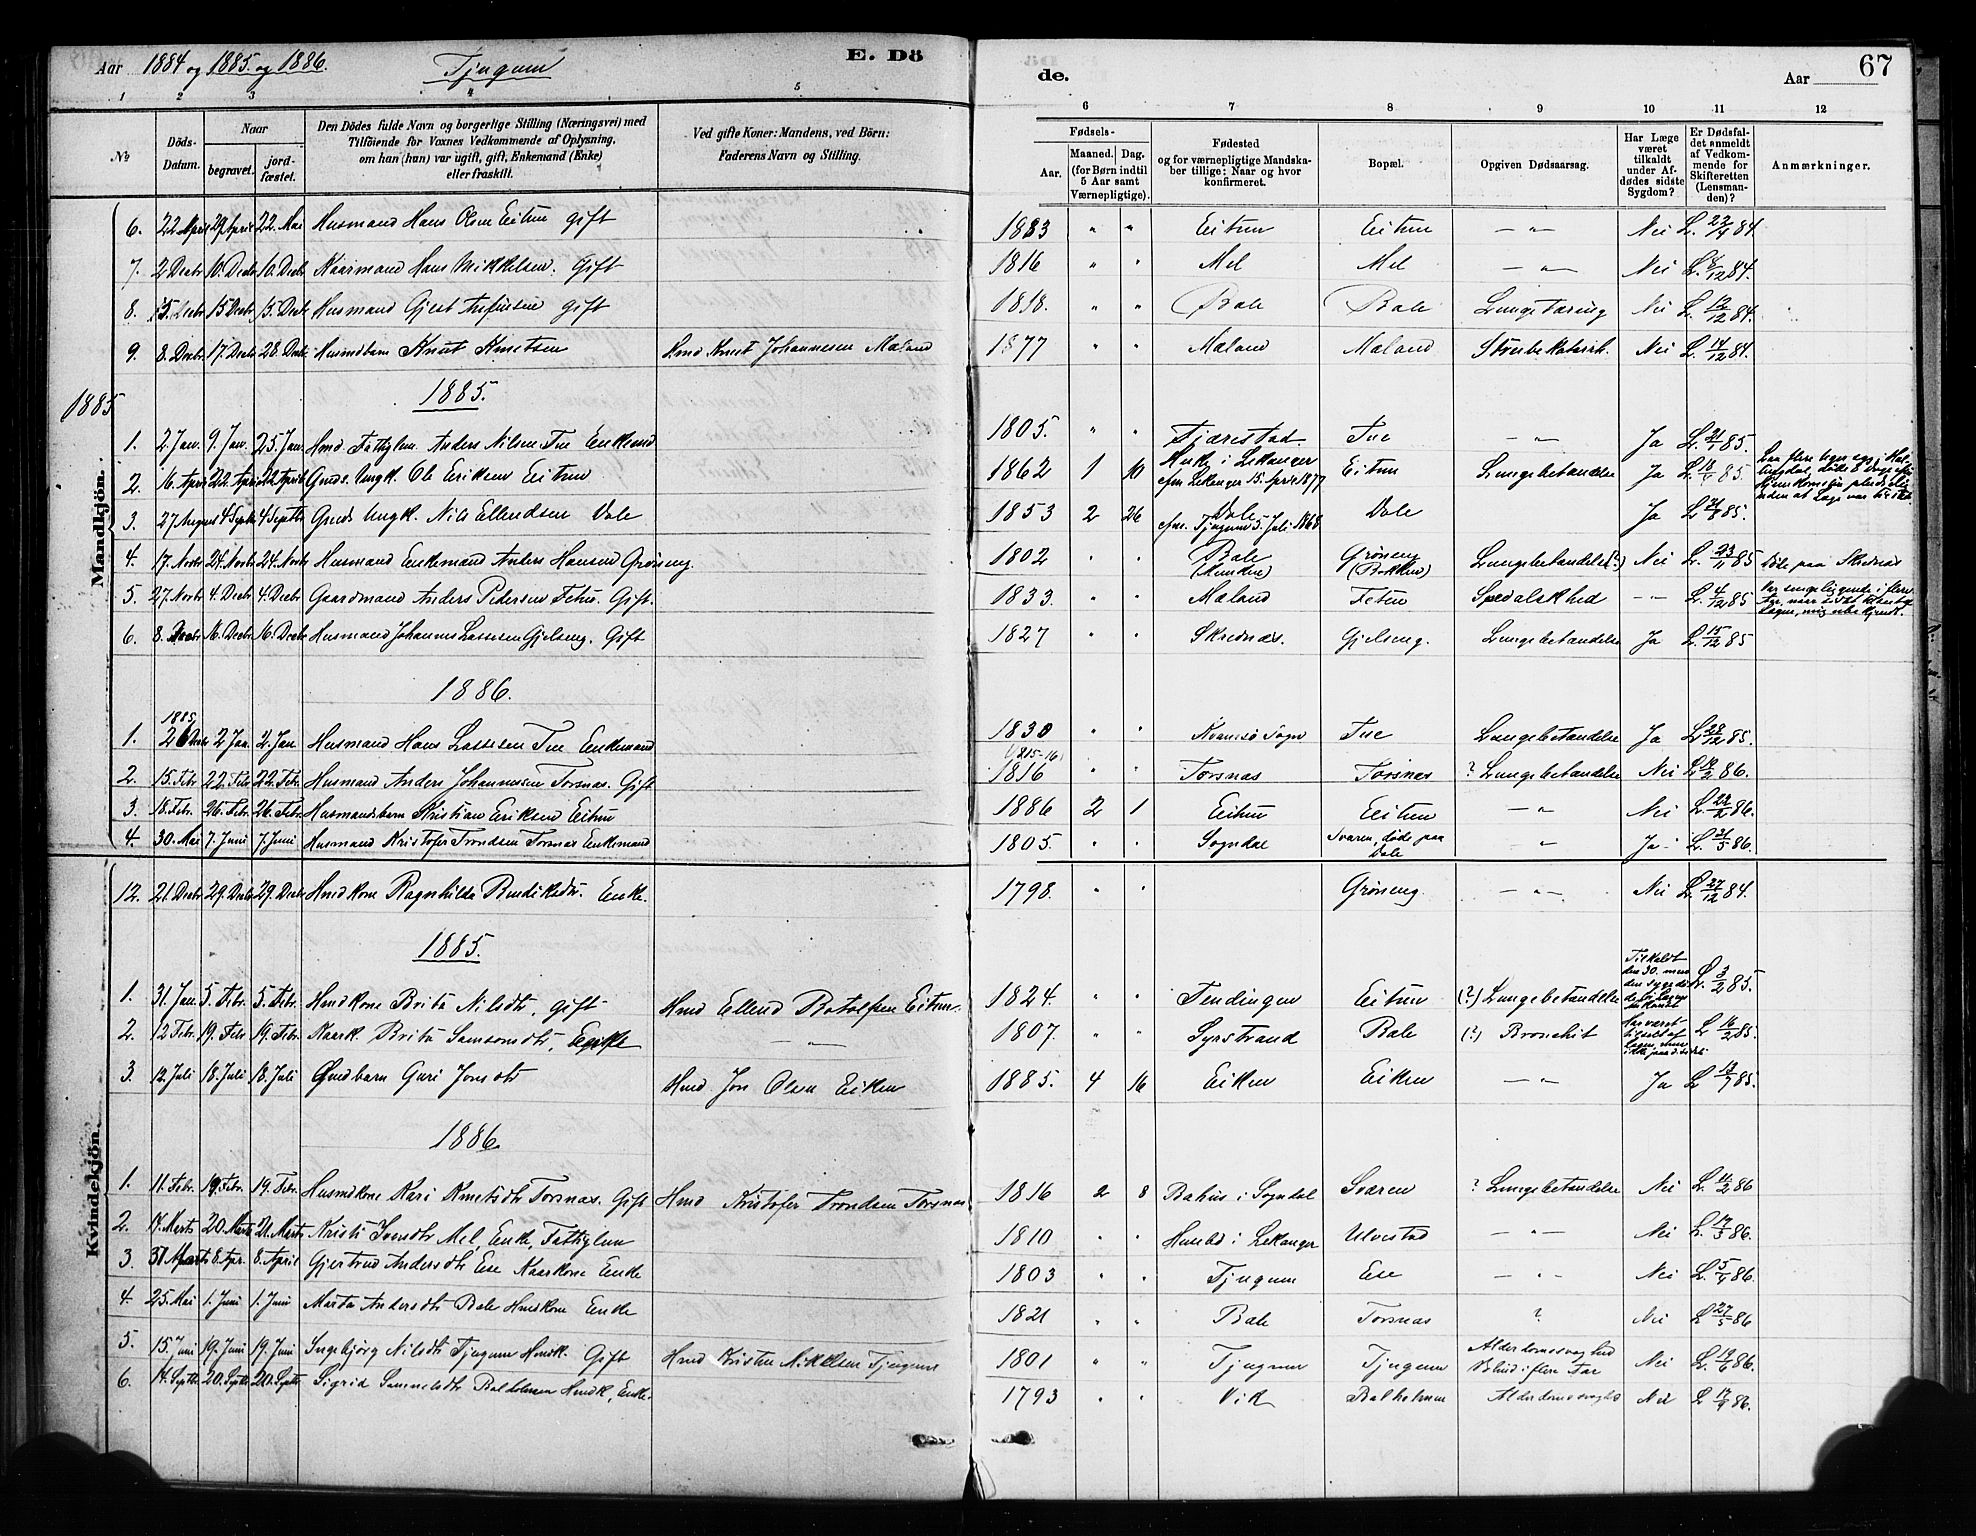 Aar 1884 og 1885 og 1886. Tjugum E. Dö
de. Aar 67
1 2 3 4 5 6 7 8 9 10 11 12
No
Döds-Datum.
Naar
begravet. jord-fæstet.
Den Dödes fulde Navn og borgerlige Stilling (Næringsvei) med
Tilföiende for Voxnes Vedkommende af Oplysning,
om han (hun) var ugift, gift, Enkemand (Enke)
eller fraskilt.
Ved gifte Koner: Mandens, ved Börn:
Faderens Navn og Stilling.
Fødsels-
Aar. Maaned. Dag.
(for Børn indtil
5 Aar samt
Værnepligtige).
Fødested
og for værnepligtige Mandska-
ber tillige: Naar og hvor
konfirmeret.
Bopæl.
Opgiven Dødsaarsag.
Har Læge
været
tilkaldt
under Af-
dødes sidste
Sygdom?
Er Dødsfal-
det anmeldt
af Vedkom-
mende for
Skifteretten
(Lensman-
den)?
Anmærkninger.
Mandkjön.
6. 22 April 29 April 22. Mai Husmand Hans Olsen Eitun gift 1883 " " Eitun Eitun — " — Nei L. 23/4 84
7. 2 Decbr 10. Decbr 10. Decbr Kaarmand Hans Mikkelsen. Gift 1816 " " Mel Mel — " — Nei L. 8/12 84.
8. 5. Decbr 15 Decbr 15. Decbr Husmand Gjest Anfinsen gift 1818. " " Bale Bale Lungetæring Nei L. 12/12 84.
9. 8. Decbr 17. Decbr 28. Decbr Husmdbarn Knut Knutsen Hmd Knut Johannesen Mæland 1877 " " Mæland Mæland Strubekatarrh. Nei L. 14/12 84.
1885
1885.
1. 2 Jan. 9. Jan. 25. Jan. Hmd Fattiglem Anders Nilsen Tue Enkemd 1805. " " Fjærestad Tue — " — Ja L. 21/1 85.
2. 16. April 22. April 22. April Gmds. Ungk. Ole Eriksen Eitun 1862 1 10 Husk i Lekanger cfm Lekanger 15. April 1877 Eitun Lungebetændelse Ja L. 18/4 85.
3. 27 August 4 Septbr 4 Septbr Gmds Ungk. Nils Ellendsen Dale 1853 2 26 Dale cfm. Tjugum 5. Juli 1868 Dale Ja L 31/8 85.
4. 17. Novbr 24. Novbr 24. Novbr Husmand Enkemand Anders Hansen Grøneng. 1802 " " Bale Grøneng (Bakken) Lungebetændelse (?) Nei L. 23/11 85 Døde paa Skednæs
5. 27. Novbr 4. Decbr 4. Decbr Gaardmand Anders Pedersen Feten. Gift. 1833. " " Mæland Feten Spedalskhed — " — L. 4/12 85 Var sengeliggende i flere
6. 8. Decbr 16. Decbr 16. Decbr Husmand Johannes Lassesen Gjelseng. Gift 1827 " " Skednæs. Gjelseng. Lungebetændelse Ja L. 15/12 85
1886.
1885
1. 26 Decbr 2 Jan. 2. Jan Husmand Hans Lassesen Tue Enkemand 1830 " " Kvamsø Sogn Tue Lungebetændelse Ja L 28/12 85.
1815-16
2. 15. Febr 22. Febr 22. Febr. Husmand Anders Johannesen Torsnæs. Gift 1816 " " Torsnæs Torsnæs ? Lungebetændelse Nei L 19/2 86.
3. 18. Febr. 26. Febr. 26. Febr Husmandsbarn Kristian Eriksen Eitun 1886 2 1 Eitun Eitun — " — Nei L. 22/2 86.
4. 30. Mai 7. Juni 7. Juni Husmand Kristofer Trondsen Torsnæs Enkemand 1805. " " Sogndal Svaren, døde paa Dale " Ja L. 31/5 86.
Kvindekjön.
12. 21. Decbr 29. Decbr 29. Decbr Hmdkone Ragnhilda Bendiksdtr. Enke. 1798. " " Grøneng. — " — Nei L. 27/12 84.
1885.
1. 31. Jan. 5. Febr. 5. Febr. Hmdkone Brita Nilsdtr, Gift Hmd Ellend Botolfsen Eitun. 1824. " " Tendingen Eitun (?) Lungebetændelse L. 3/2 85.
2. 12 Febr 19. Febr 19. Febr. Kaark. Brita Samsonsdtr, Enke — " — 1807. " " Syrstrand Bale (?) Bronchit L 16/2 85.
3. 12. Juli 18. Juli 18. Juli Gmdbarn Guri Jonsdtr Hmd Jon Olsen Eiken 1885. 4 16 Eiken Eiken — " — Ja L 13/7 85.
1886.
1. 11. Febr. 19. Febr. 19. Febr. Husmdkone Kari Knutsdtr Torsnæs. Gift Hmd Kristofer Trondsen Torsnæs 1816 2 8 Bahus i Sogndal Svaren ? Lungebetændelse Nei L. 12/2 86
2. 14. Marts 20. Marts 21. Marts Kristi Iversdtr Mel, Enke, Fattiglem 1810 " " Husebø i Lekanger Ulvestad — " — Nei L. 17/3 86.
3. 31 Marts 8. Apr. 8. April Gjertrud Andersdtr Ese Kaarkone Enke 1803 " " Tjugum Ese — " — Nei L. 5/4 86.
4. 25. Mai 1. Juni 1. Juni Marta Andersdtr Bale Hmdkone Enke 1821 " " Bale Torsnæs ? Nei L 27/5 86
5. 15. Juni 19. Juni 19. Juni Ingebjørg Nilsdtr Tjugum Hmdk. Gift Hmd Kristen Mikkelsen Tjugum 1801 " " Tjugum Tjugum Alderdomssvaghed Blind i flere Aar Nei L. 19/6 86.
6. 14. Septbr 20. Septbr 20. Septbr Sigrid Balholmen Hmdk, Enke. 1793 " " Vik Balholmen Alderdomssvaghed Nei L 17/9 86.